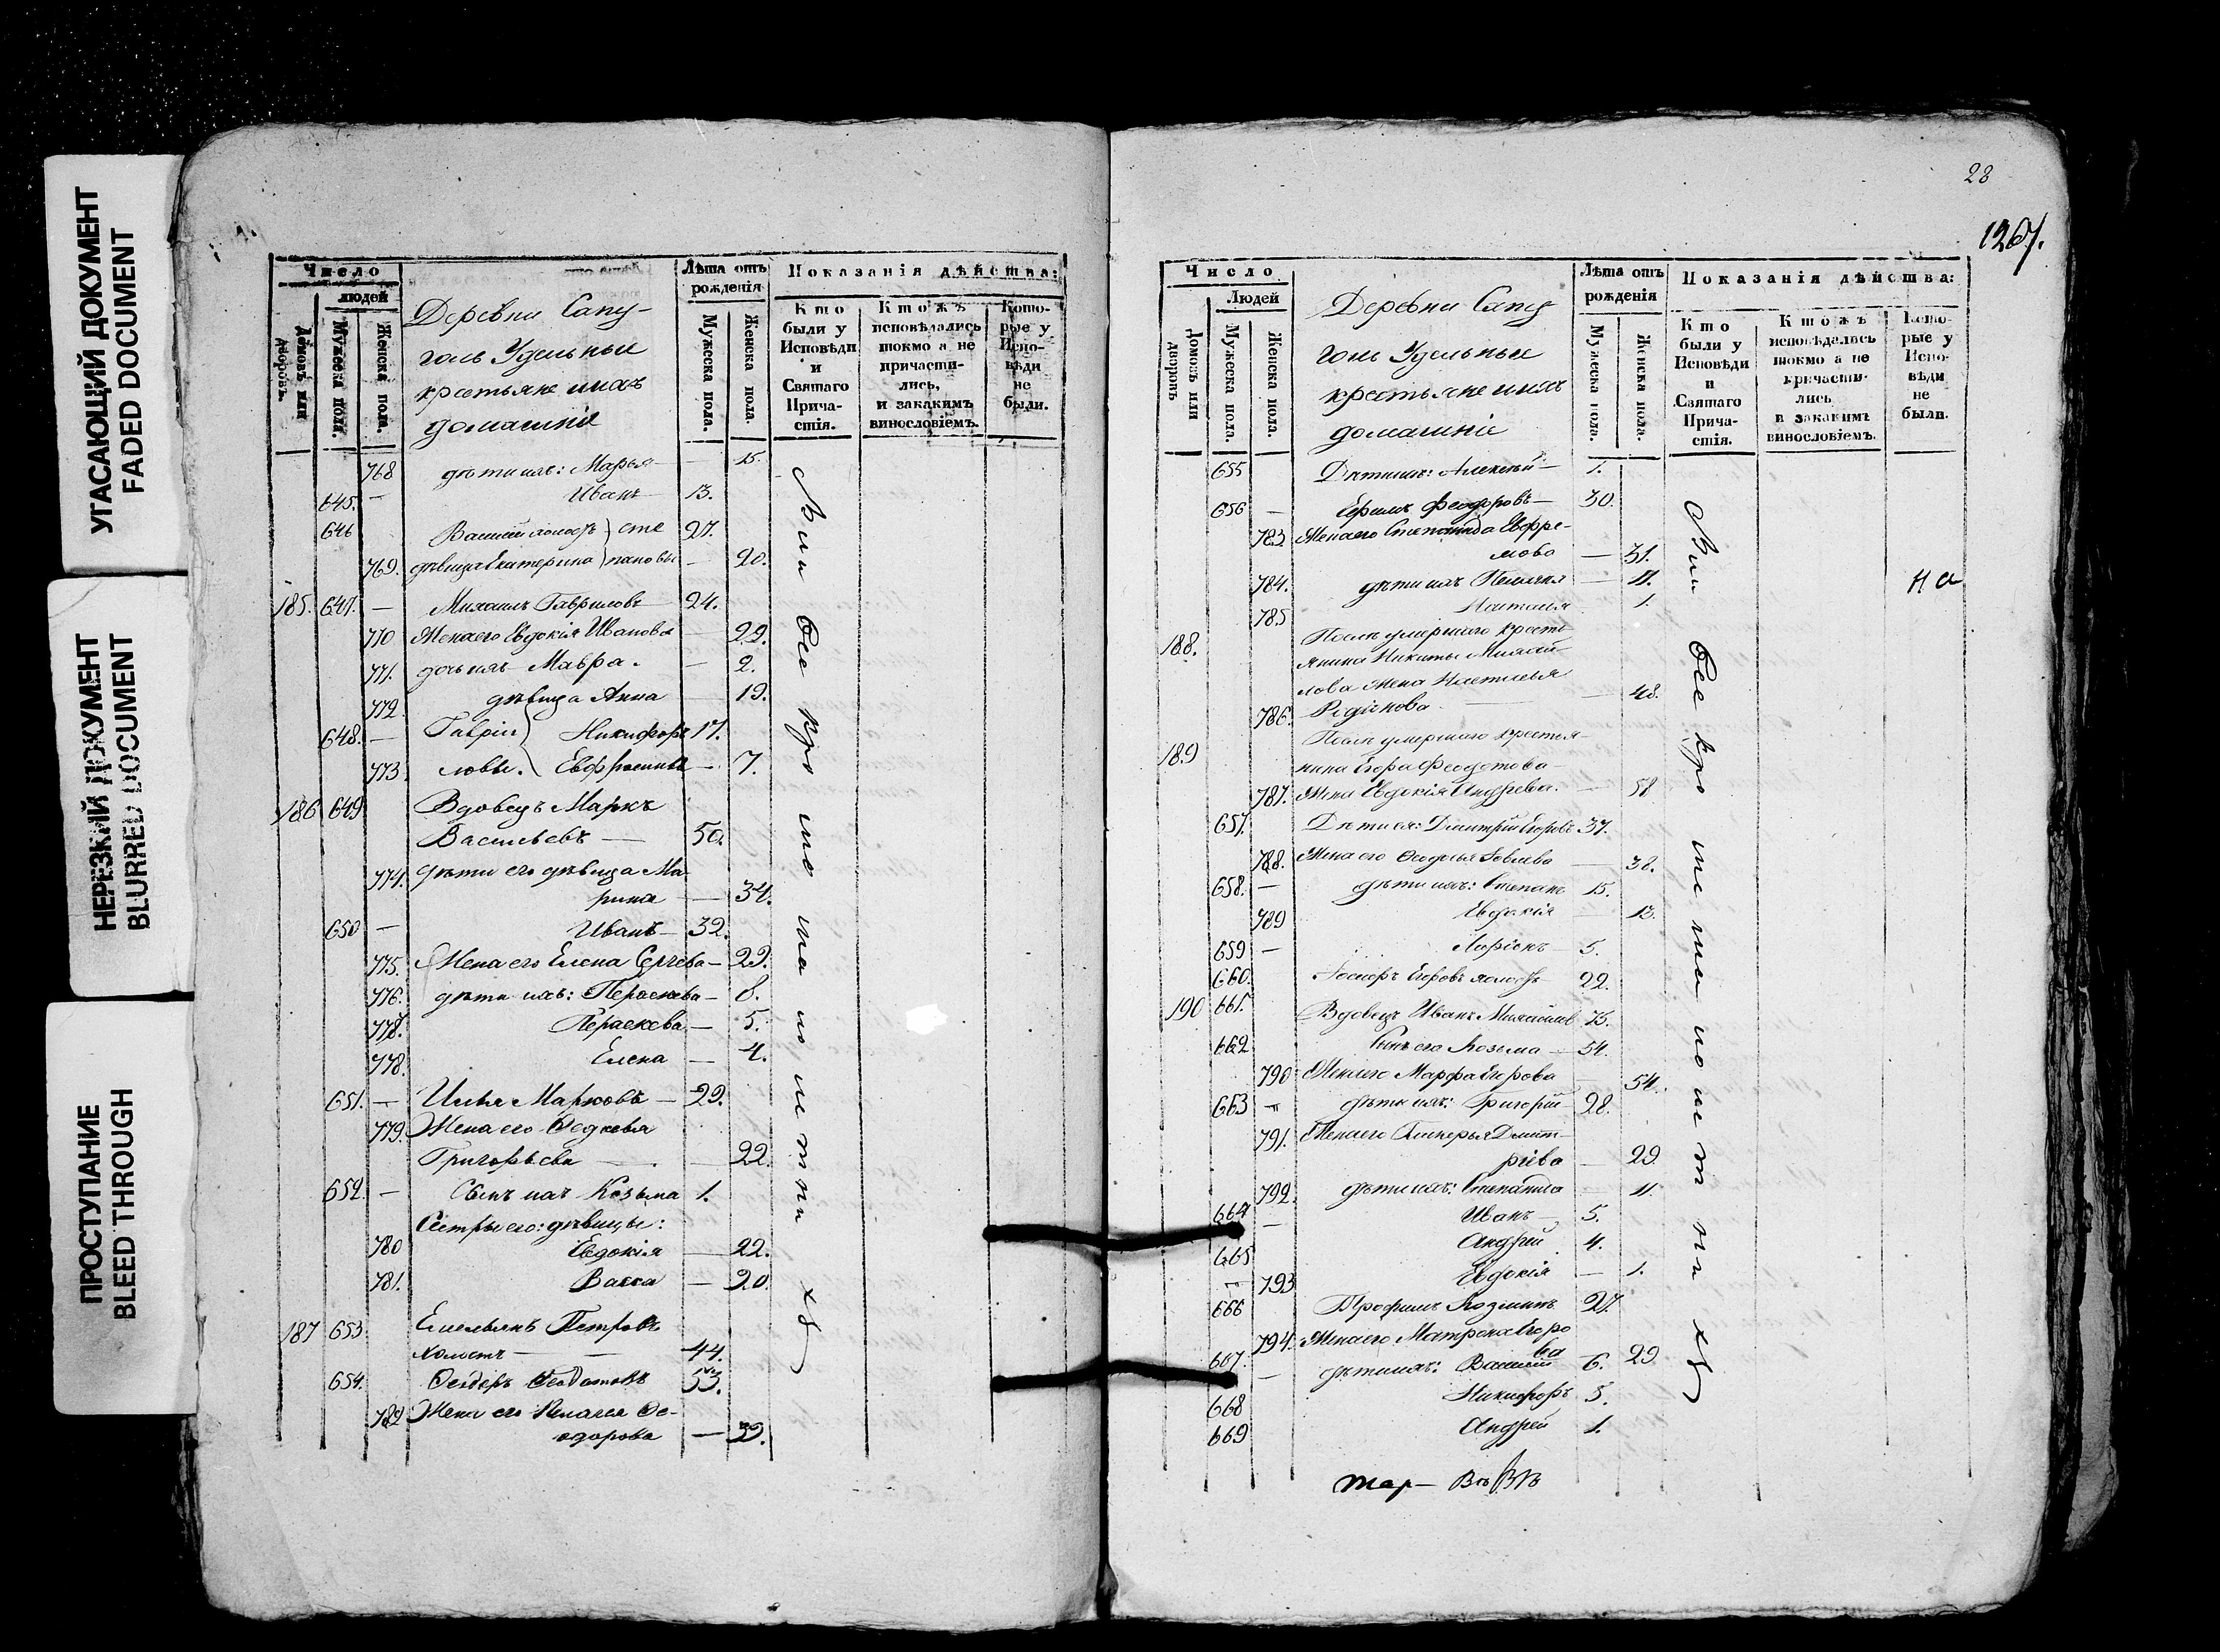 УГАСАЮЩИЙ ДОКУМЕНТ
FADED DOCUMENT
НЕРЕЗКИЙ ДОКУМЕНТ
BLURRED DOCUMENT
ПРОСТУПАНИЕ
BLEED THROUGH
Число
людей
Домовъ или дворовъ.
Мужеска пола.
Женска пола.
Деревни Сапу-
голь Удельные
крестьяне ихъ
домашніе
Лѣта отъ рожденія
Мужеска пола.
Женска пола.
Показанія дѣйства:
Кто были у Исповѣди и Святаго Прича- стія.
Ктожъ исповѣдались токмо а не причасти- лись, и закакимъ винословіемъ.
Кото- рые у Испо- вѣди не были.
768 дѣти ихъ: Марья — 15.
645. — Иванъ — 13.
646 Василій холостъ } Сте 27.
769. дѣвица Екатерина } пановы — 20.
185. 647. — Михаилъ Гавриловъ — 24.
770 Жена его Евдокія Иванова — 22.
771. дочь ихъ Мавра. — 2.
772 дѣвица Анна — 19.
648. — Гаври } Никифоръ 17.
773 ловы. } Евфросинья — 7.
186 649 Вдовецъ Маркъ
Васильевъ — 50.
774. дѣти его дѣвица Ма
рина — 34.
650 — Иванъ — 32.
775. Жена его Елена — 29.
776. дѣти ихъ: Пераскева — 8.
778. Пераскева — 5.
778. Елена — 4.
651. — Илья Марковъ — 29.
779. Жена его
Григорьева — 22.
652. — Сынъ ихъ Козьма 1.
Сестры его: дѣвицы:
780 Евдокія — 22.
781. Васса — 20.
187 653 Емельянъ Петровъ
холостъ — 44.
654. Феодоръ 53.
782 Жена его Пелагея Фе-
одорова — 39.
28
1267.
Число
Людей
Домовъ или дворовъ
Мужеска пола.
Женска пола.
Деревни Сапу
голь Удельные
крестьяне ихъ
домашніе
Лѣта отъ рожденія
Мужеска пола.
Женска пола.
Показанія дѣйства:
Кто были у Исповѣди и Святаго Прича- стія.
Ктожъ исповѣдались токмо а не причасти- лись и закакимъ винословіемъ.
Кото- рые у Испо- вѣди не были.
655 Дѣти ихъ: Алексѣй — 1.
656 — Ефимъ Феодоровъ — 30.
783 Жена его Степанида Евфре-
мова — 31.
784. дѣти ихъ Пелагея — 11.
785 Наталья 1.
188. Послѣ умершаго кресть
янина Никиты Михай
лова Жена Наталья
786. Родіонова — 48.
189 Послѣ умершаго крестья-
нина Егора Феодотова
787. Жена Евдокія Андреева. — 58
657. Дѣти ея: Дмитрій Егоровъ 37.
788. Жена его — 38.
658. — дѣти ихъ: Степанъ 15.
789 Евдокія — 13.
659 — Ларіонъ 5.
660. Егоровъ холостъ 22.
190 661. Вдовецъ Иванъ Михайловъ 75.
662 Сынъ его Козьма — 54.
790 Жена его Марфа Егорова 54.
663 — дѣти ихъ: Григорій 28.
791. Жена его Гликерья Дмит-
ріева — 29
792. дѣти ихъ: Степанида — 11.
664 — Иванъ — 5.
665 Андрей 4.
793 Евдокія — 1.
666 Трофимъ Козминъ 27.
794. Жена его Матрона Егоро
ва 29
667. — дѣти ихъ: Василій 6.
668 Никифоръ 5.
669 Андрей 1.